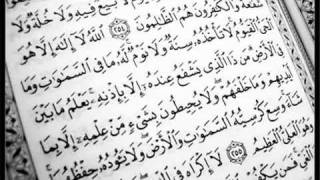 بَيْعٌ فِيهِ وَلَا خُلَّةٌ وَلَا
شَفَٰعَةٌ وَٱلْكَٰفِرُونَ هُمُ ٱلظَّٰلِمُونَ ٢٥٤ ٱللَّهُ لَآ إِلَٰهَ إِلَّا هُوَ
ٱلْحَىُّ ٱلْقَيُّومُ لَا تَأْخُذُهُۥ سِنَةٌ وَلَا نَوْمٌ لَّهُۥ مَا فِى ٱلسَّمَٰوَٰتِ وَمَا
فِى ٱلْأَرْضِ مَن ذَا ٱلَّذِى يَشْفَعُ عِندَهُۥٓ إِلَّا بِإِذْنِهِۦ يَعْلَمُ مَا بَيْنَ
أَيْدِيهِمْ وَمَا خَلْفَهُمْ وَلَا يُحِيطُونَ بِشَىْءٍ مِّنْ عِلْمِهِۦٓ إِلَّا بِمَا
شَآءَ وَسِعَ كُرْسِيُّهُ ٱلسَّمَٰوَٰتِ وَٱلْأَرْضَ وَلَا يَـُٔودُهُۥ حِفْظُهُمَا
وَهُوَ ٱلْعَلِىُّ ٱلْعَظِيمُ ٢٥٥ لَآ إِكْرَاهَ فِى
ٱلْغَىِّ فَمَن